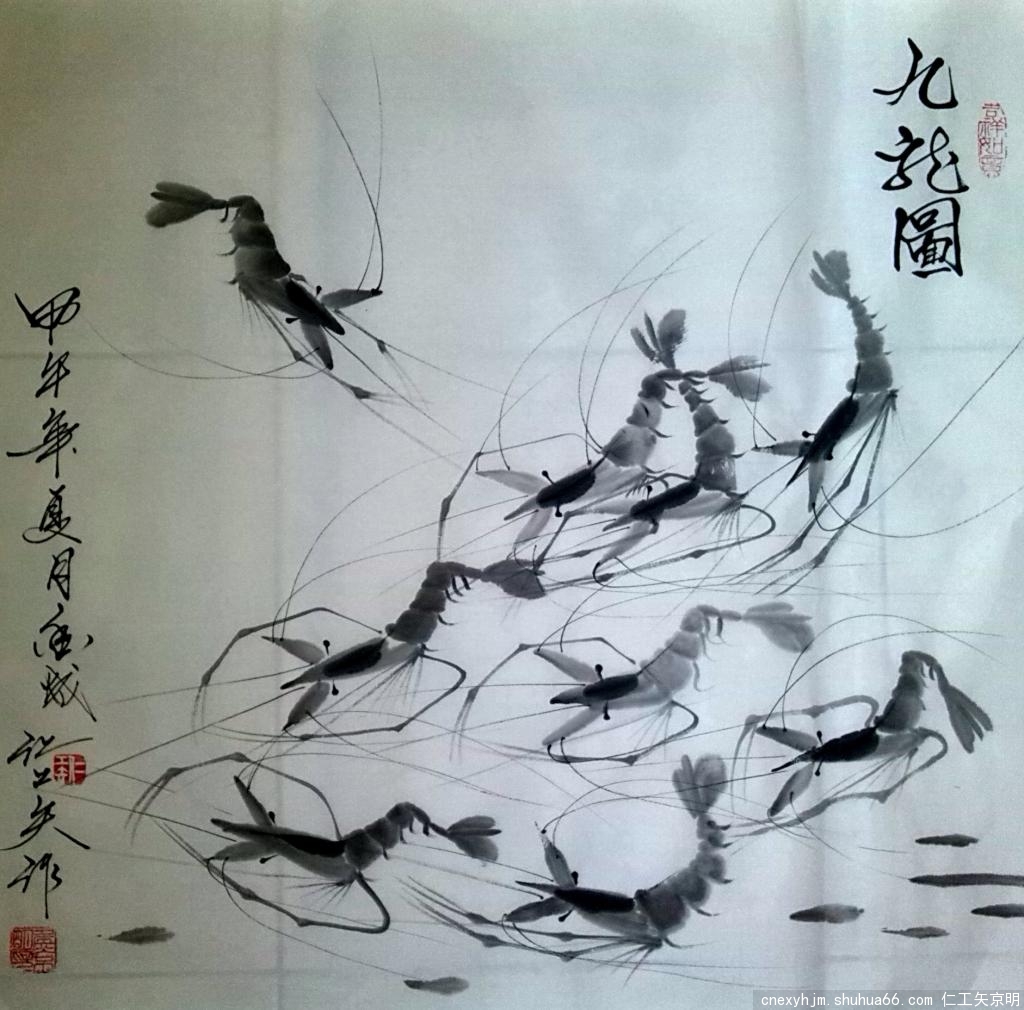 九龍圖
吉祥如意
甲午年夏月仁工矢作
cnexyhjm.shuhua66.com 仁工矢京明